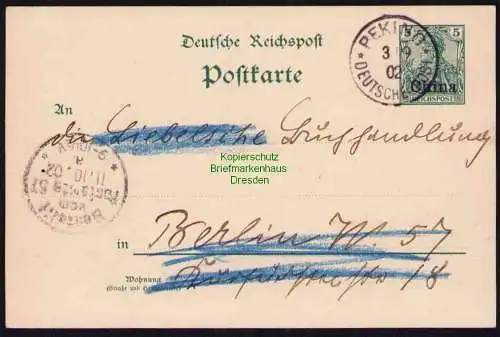 Deutsche Reichspost
Postkarte
PEKING
3 9
02
* DEUTSCHE POST *
5
China
REICHSPOST
An
die Liebelsche Buchhandlung
Kopierschutz
Briefmarkenhaus
Dresden
Bestellt
vom
Postamte 57
11.10.02
in
Berlin W. 57
Wohnung
Kurfürstenstr 18
(Straße und